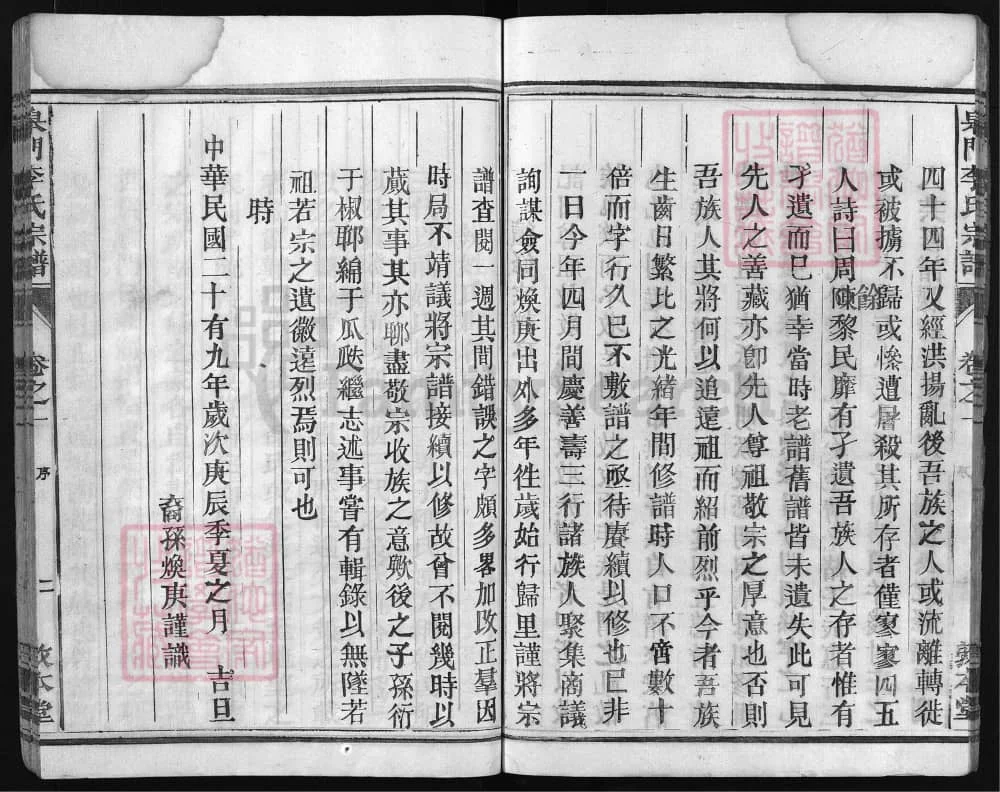 四十四年又經洪揚亂後吾族之人或流離轉徙
或被擄不歸或慘遭屠殺其所存者僅寥寥四五
人詩曰周餘黎民靡有孑遺吾族人之存者惟有
孑遺而已猶幸當時老譜舊譜皆未遺失此可見
先人之善藏亦卽先人尊祖敬宗之厚意也否則
吾族人其將何以追遠祖而紹前烈乎今者吾族
生齒日繁比之光緒年間修譜時人口不啻數十
倍而字行久已不敷譜之亟待賡續以修也已非
一日今年四月間慶善壽三行諸族人聚集商議
詢謀僉同煥庚出外多年徃歲始行歸里謹將宗
譜查閱一週其間錯誤之字頗多畧加改正羣因
時局不靖議將宗譜接續以修故曾不閱幾時以
蕆其事其亦聊盡敬宗收族之意歟後之子孫衍
于椒聊綿于瓜瓞繼志述事嘗有輯錄以無墜若
祖若宗之遺徽遠烈焉則可也
時
中華民國二十有九年歲次庚辰季夏之月 吉旦
裔孫煥庚謹識
門李氏宗譜 卷之一
門李氏宗譜 卷之一 序 二 敦本堂